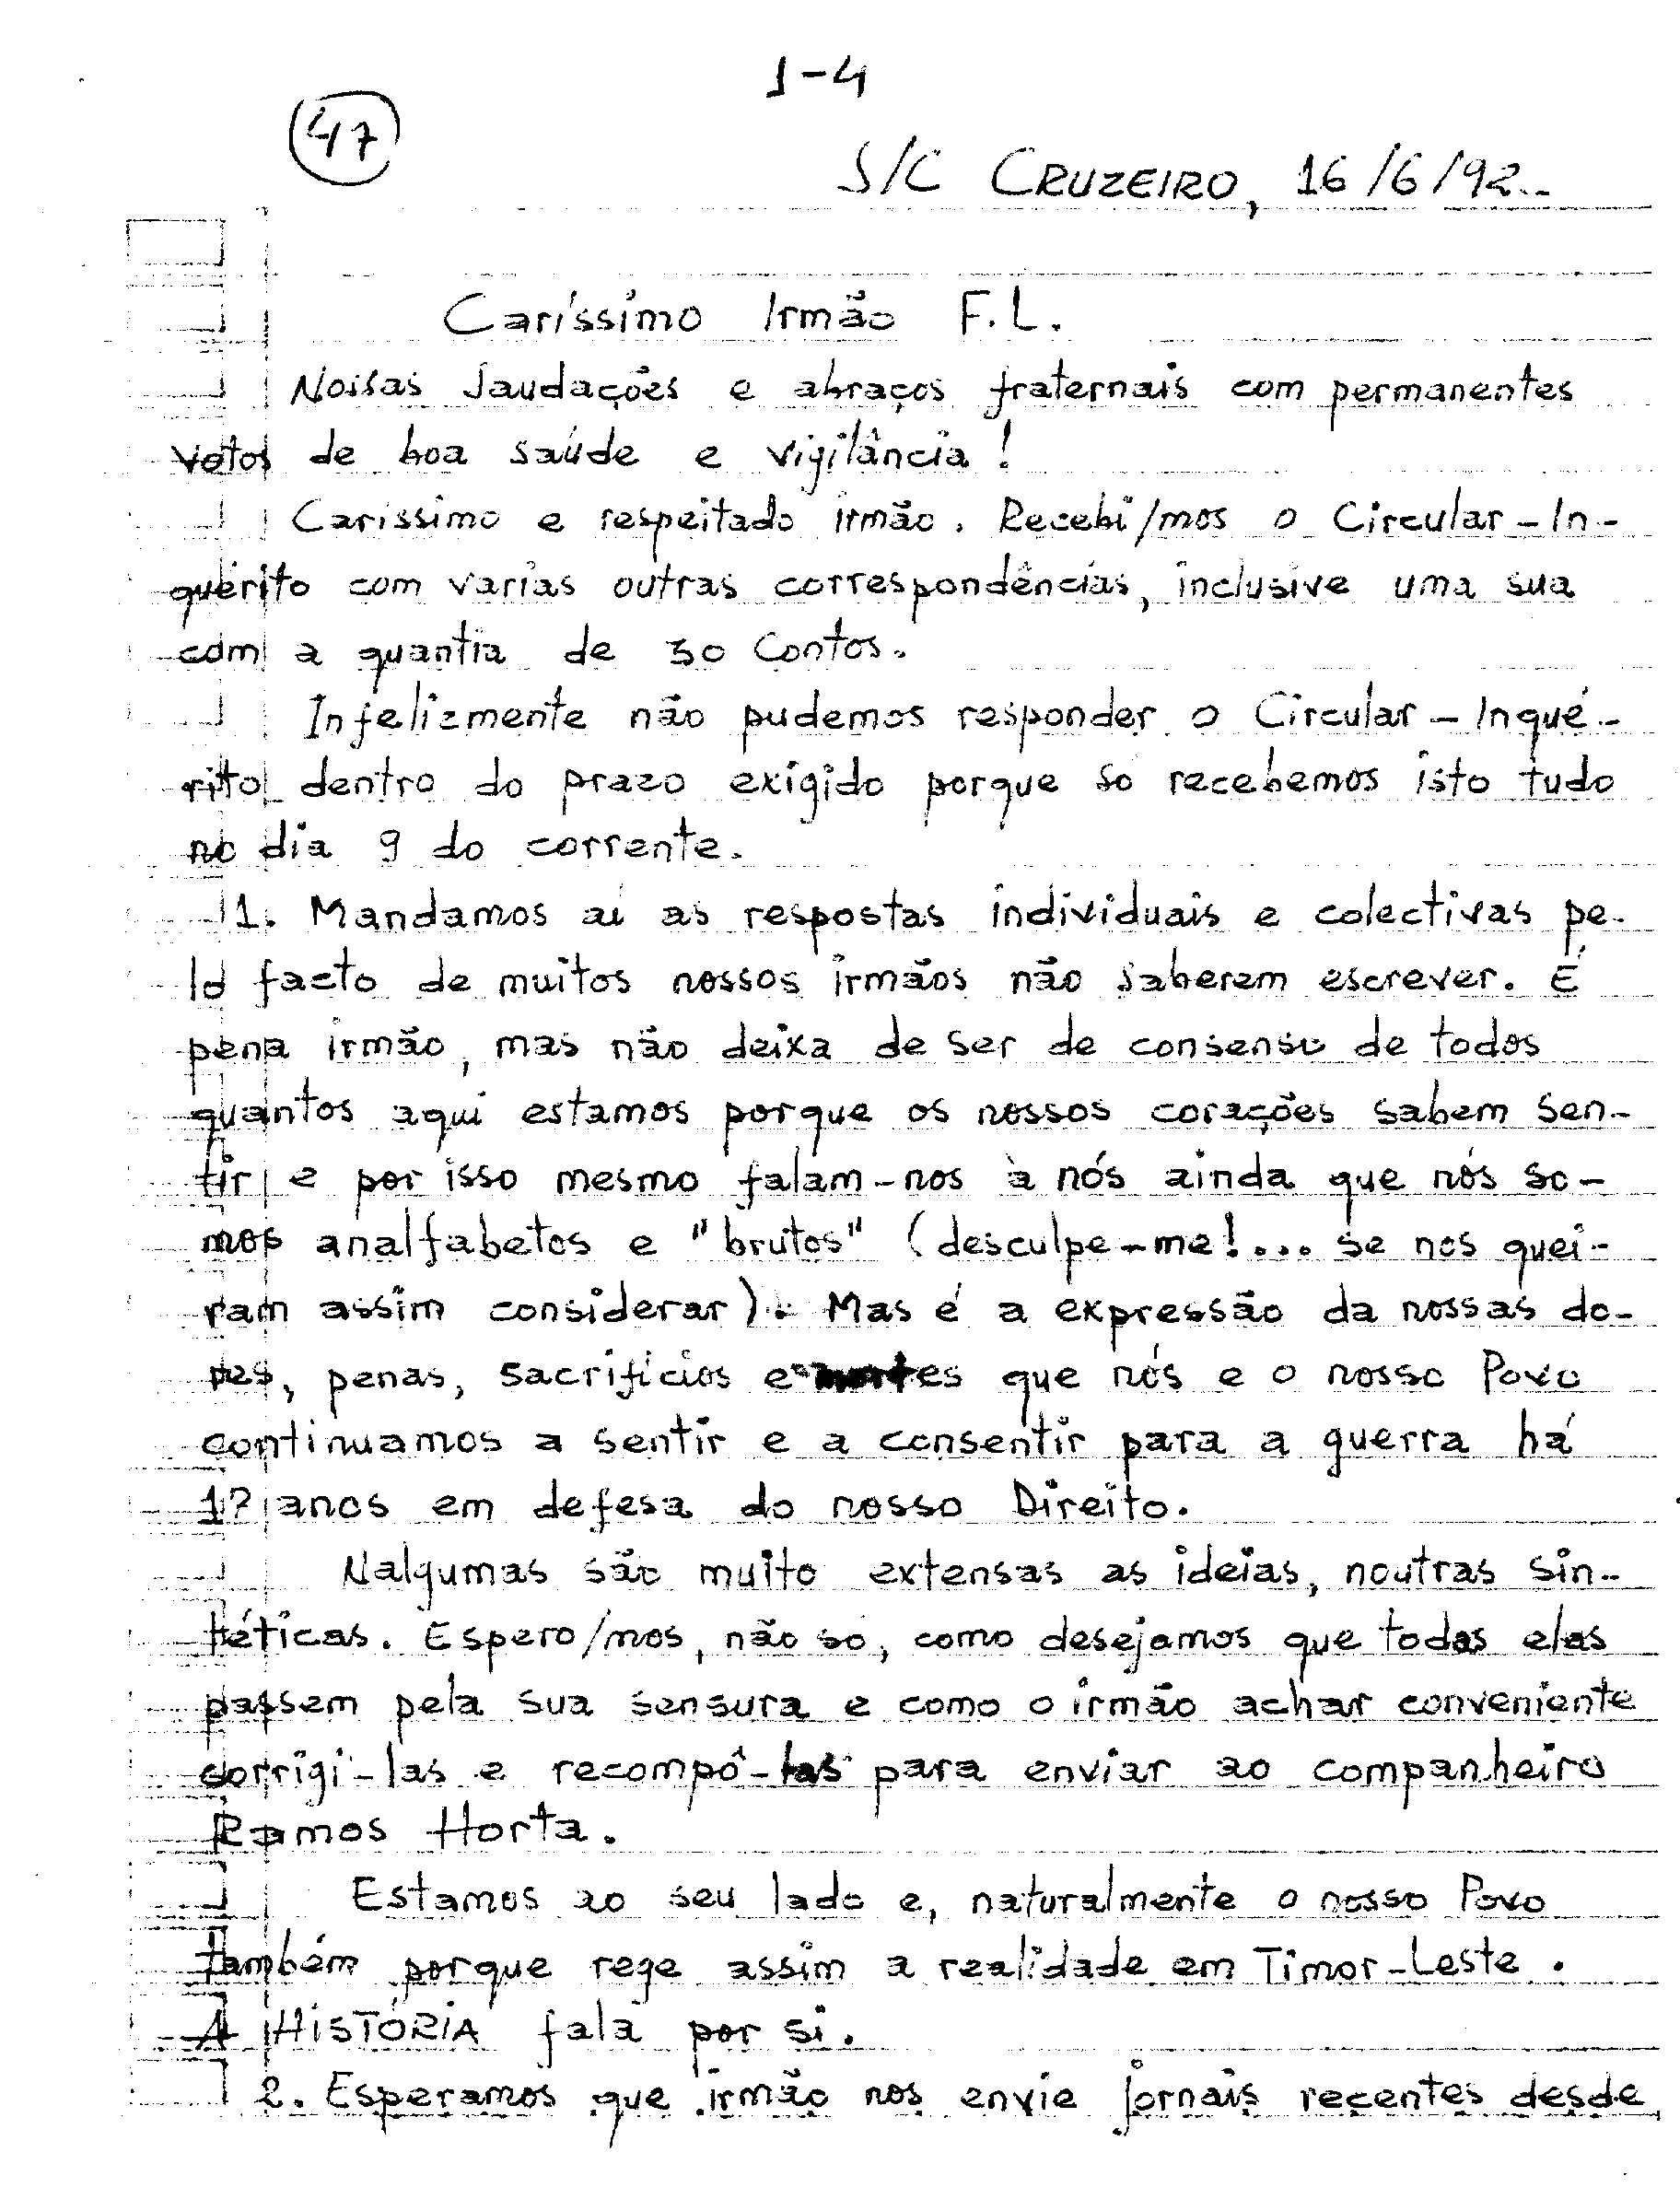 1-4
47
S/C CRUZEIRO, 16/6/92.
Caríssimo Irmão F.L.
Nossas saudações e abraços fraternais com permanentes
votos de boa saúde e vigilância!
Caríssimo e respeitado irmão. Recebi/mos o Circular-In-
quérito com varias outras correspondências, inclusive uma sua
com a quantia de 30 Contos.
Infelizmente não pudemos responder o Circular-Inqué-
rito dentro do prazo exigido porque so recebemos isto tudo
no dia 9 do corrente.
1. Mandamos aí as respostas individuais e colectivas pe-
lo facto de muitos nossos irmãos não saberem escrever. É
pena irmão, mas não deixa de ser de consenso de todos
quantos aqui estamos porque os nossos corações sabem sen-
tir e por isso mesmo falam-nos à nós ainda que nós so-
mos analfabetos e "brutos" (desculpe-me!... se nos quei-
ram assim considerar). Mas é a expressão da nossas do-
res, penas, sacrifícios e mortes que nós e o nosso Povo
continuamos a sentir e a consentir para a guerra há
17 anos em defesa do nosso Direito.
Nalgumas são muito extensas as ideias, noutras sin-
téticas. Espero/mos, não so, como desejamos que todas elas
passem pela sua sensura e como o irmão achar conveniente
corrigi-las e recompô-las para enviar ao companheiro
Ramos Horta.
Estamos ao seu lado e, naturalmente o nosso Povo
também porque rege assim a realidade em Timor-Leste.
A HISTÓRIA fala por si.
2. Esperamos que irmão nos envie jornais recentes desde